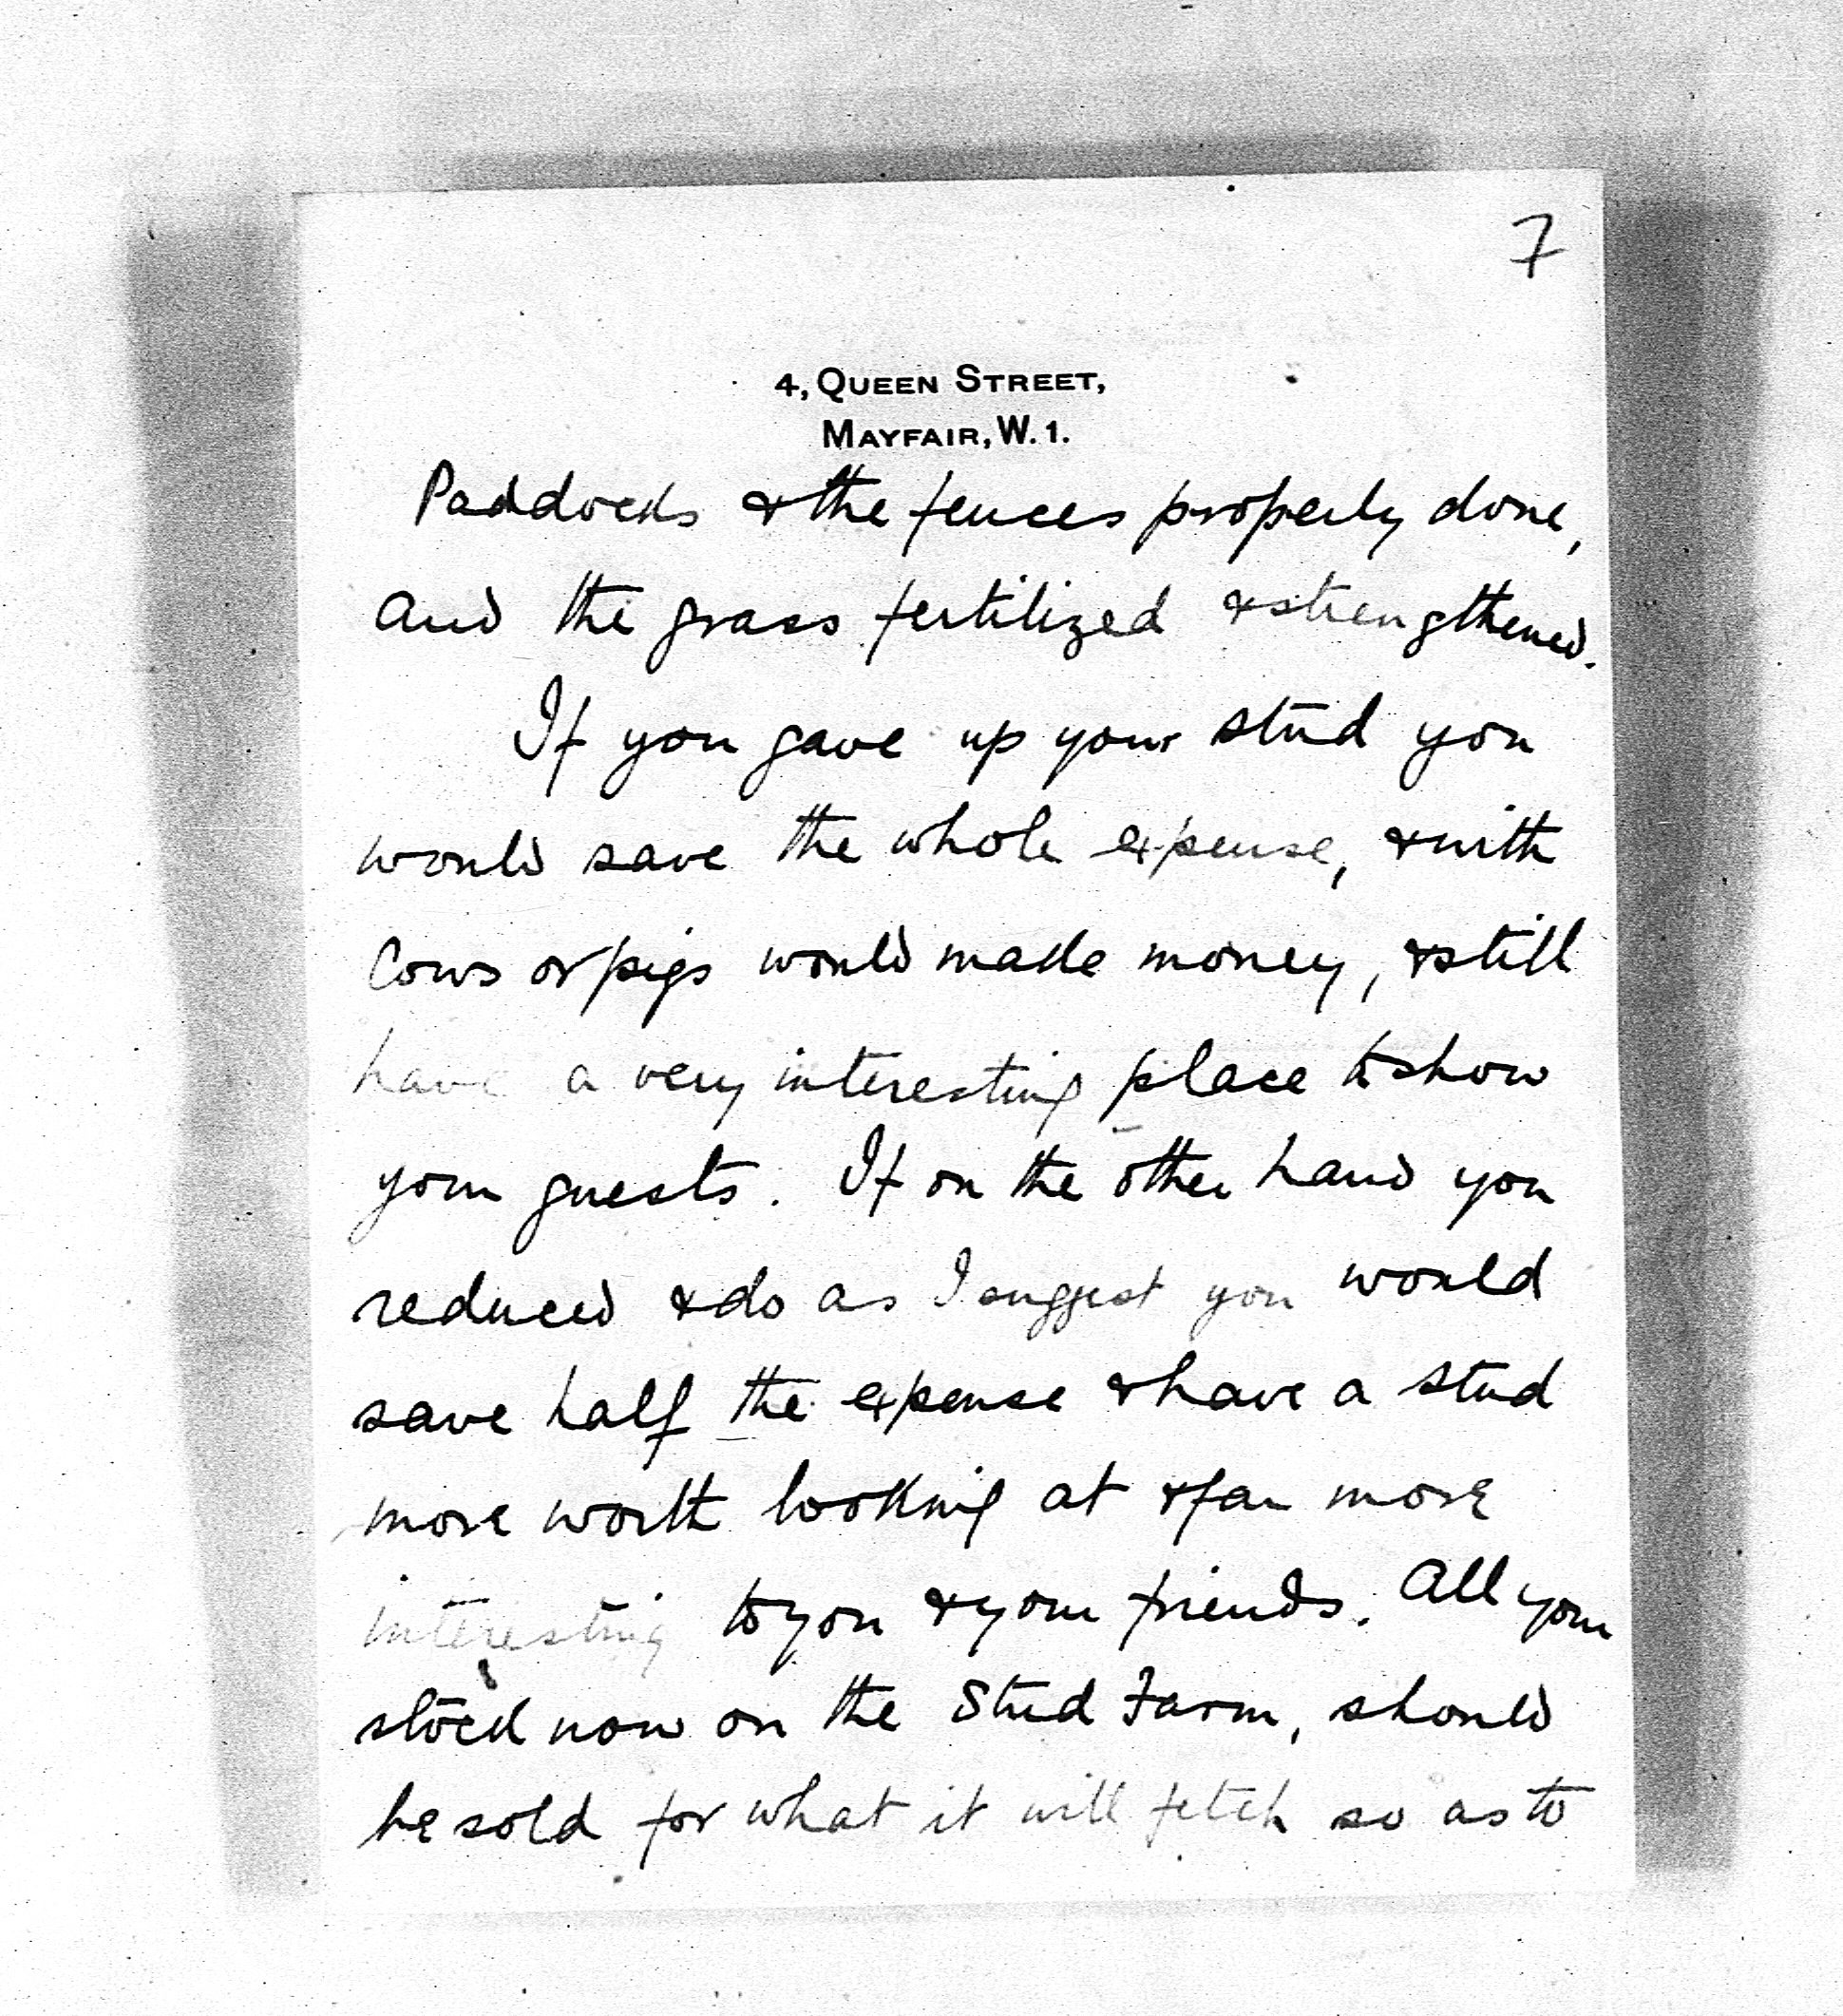 7
4, QUEEN STREET,
MAYFAIR, W. 1.
Paddocks & the fences properly done,
and the grass fertilized & strengthened.
If you gave up your stud you
would save the whole expense, & with
Cows or pigs would make money, & still
have a very interesting place to show
your guests. If on the other hand you
reduced & do as I suggest you would
save half the expense & have a stud
more worth looking at & far more
interesting to you & your friends. All your
stock now on the Stud Farm, should
be sold for what it will fetch so as to